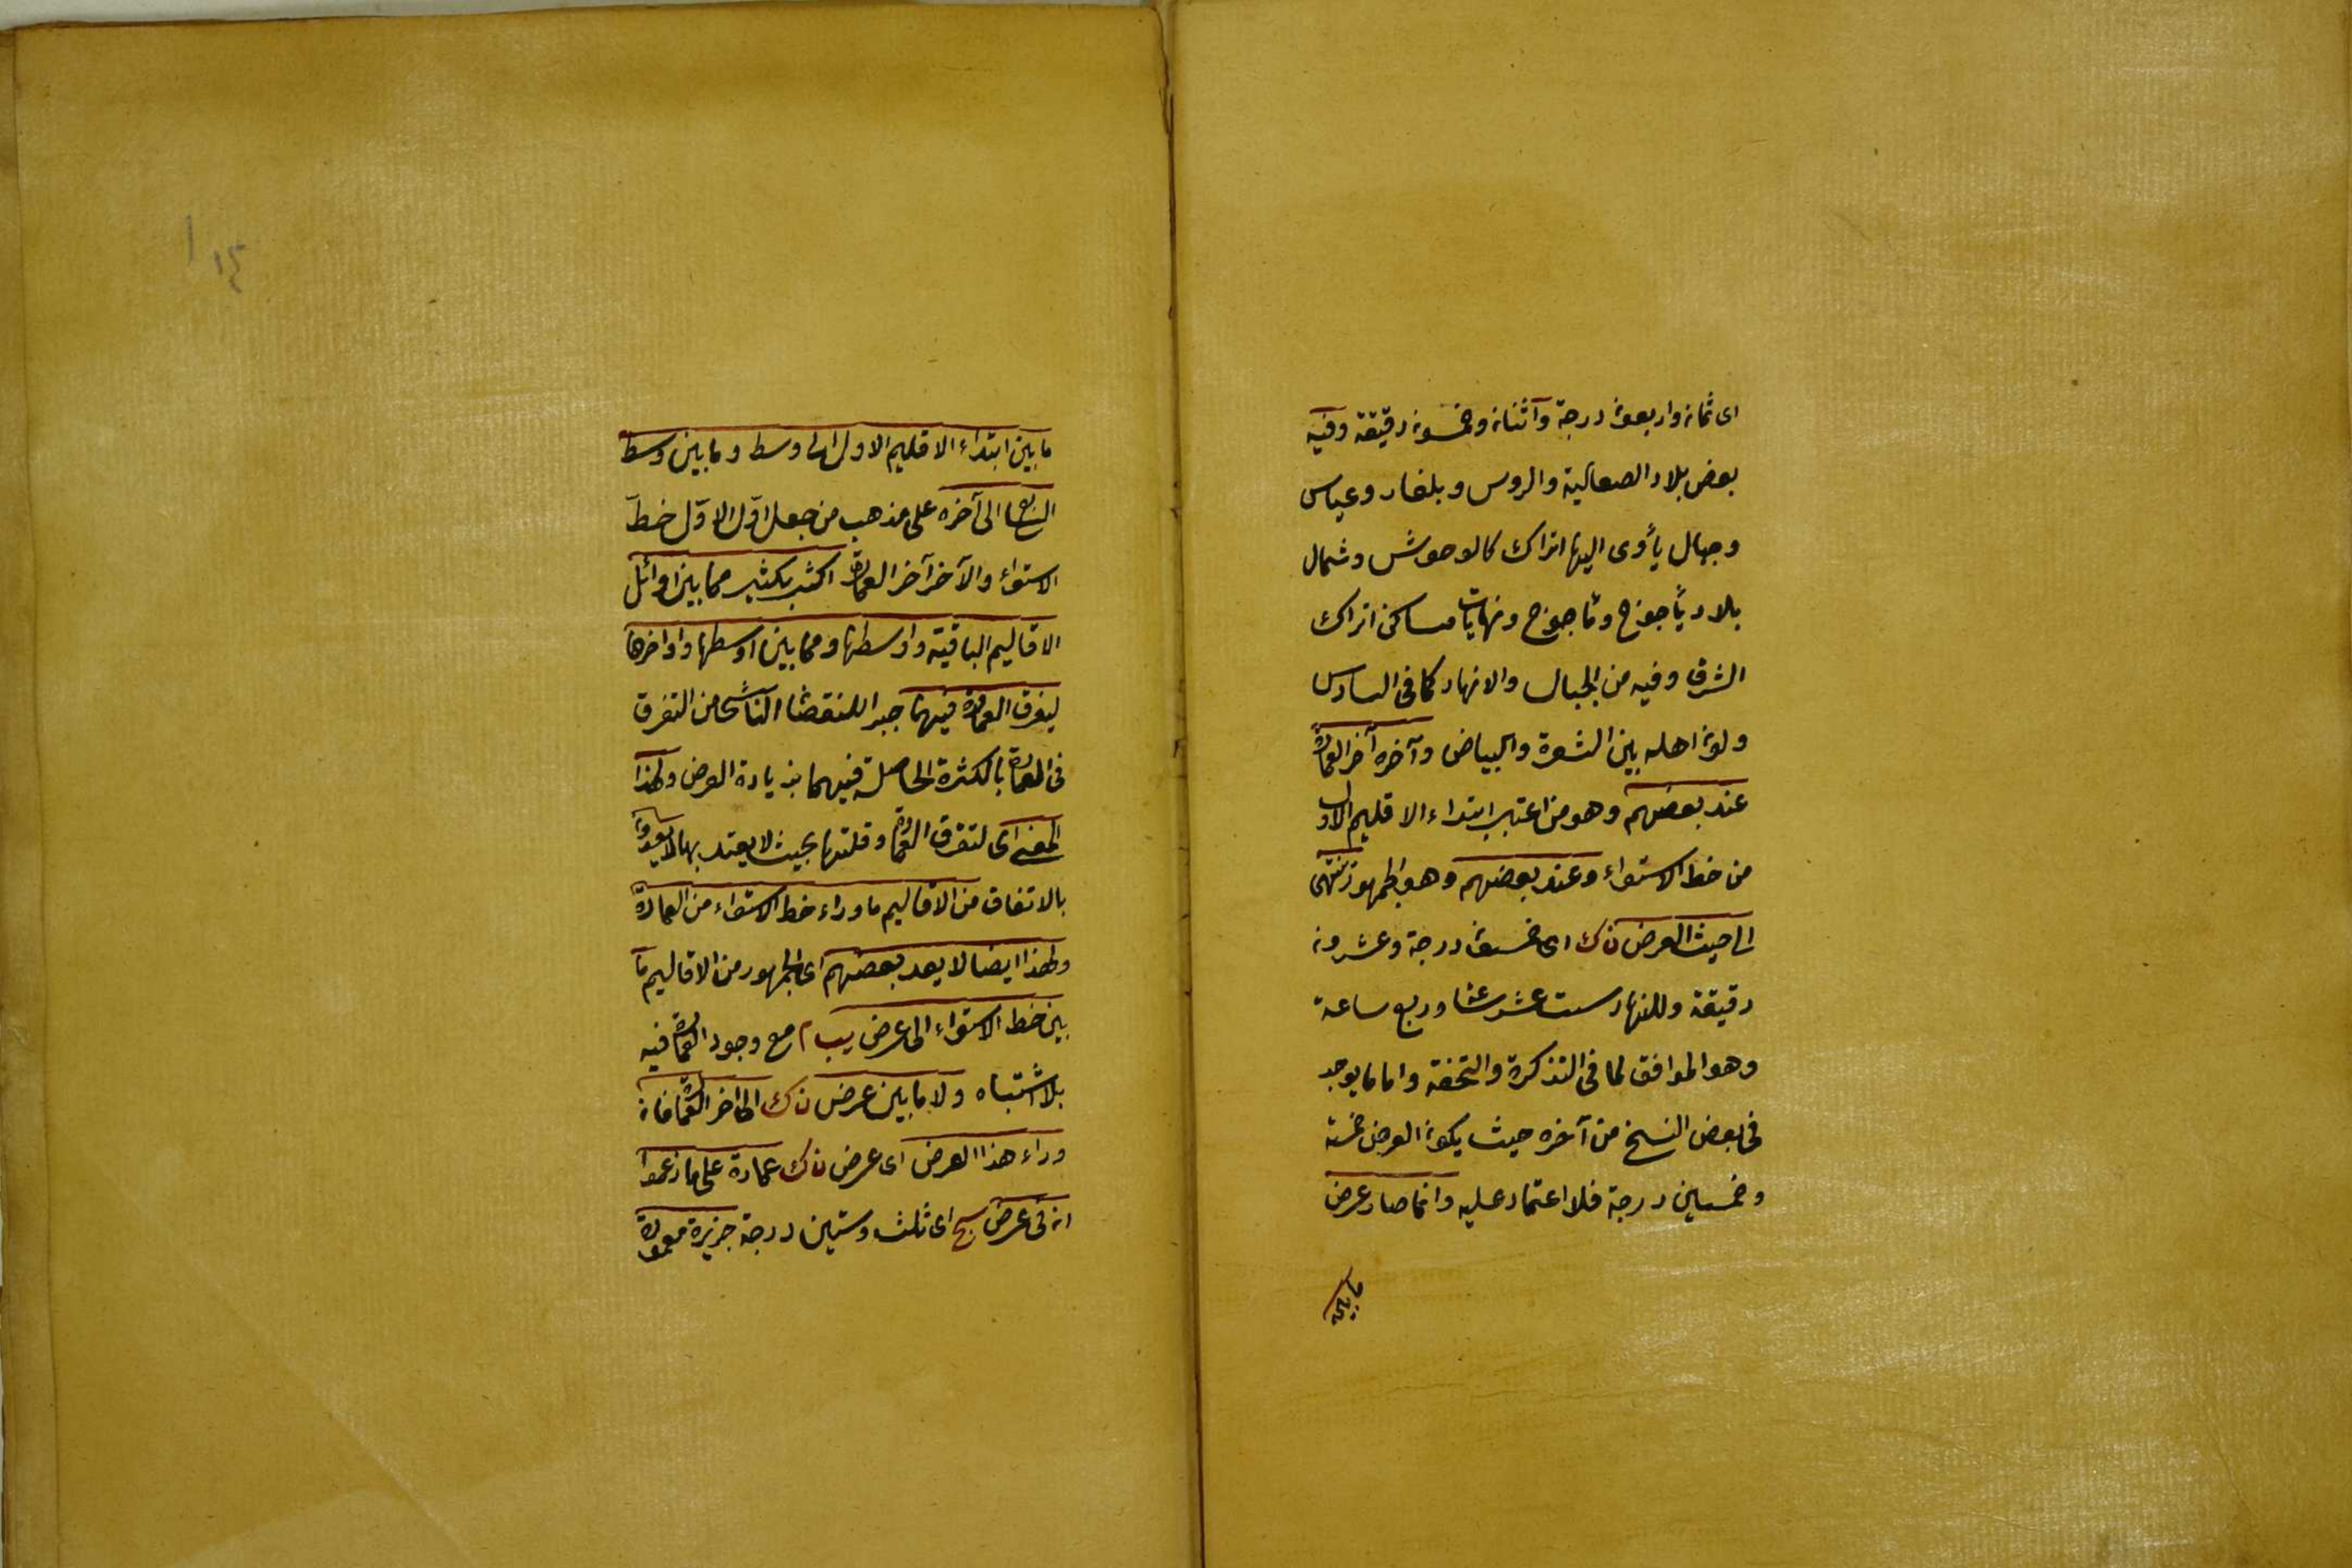 اى ثمان واربعون درجة واثنان وخمسون دقيقة وفيه
بعض بلاد الصعالية والروس وبلغار وعياس
وجبال يأوى اليها اتراك كالوحوش وشمال
بلاد يأجوج ومأجوج ونهايات مساكن اتراك
الشرق وفيه من الجبال والانهار كما فى السادس
ولون اهله بين الشعرة والبياض وآخره آخر العمارة
عند بعضهم وهو من اعتبر ابتداء الاقليم الاول
من خط الاستواء وعند بعضهم وهو الجمهور ينتهى
الى حيث العرض ن ك اى خمسون درجة وعشرون
دقيقة وللنهار ست عشر ساعة وربع ساعة
وهو الموافق لما فى التذكرة والتحفة واما ما يوجد
فى بعض النسخ من آخره حيث يكون العرض خمسة
وخمسين درجة فلا اعتماد عليه وانما صار عرض
ما بين
١٤
ما بين ابتداء الاقليم الاول الى وسط وما بين وسط
السابع الى آخره على مذهب من جعل اوّل الاوّل خطّ
الاستواء والآخر آخر العمارة اكثر بكثير مما بين اوائل
الاقاليم الباقية واوسطها ومما بين اوسطها واواخرها
ليفرق العمارة فيهما جبرا للنقصان الناشى من التفرق
فى العمارة بالكثرة الحاصلة فيهما بزيادة العرض ولهذا
المعنى اى لتفرق العمارة وقلتها بحيث لا يعتد بها لا يعدون
بالاتفاق من الاقاليم ما وراء خط الاستواء من العمارة
ولهذا ايضا لا يعد بعضهم اى الجمهور من الاقاليم ما
بين خط الاستواء الى عرض يب م مع وجود العمارة فيه
بلا اشتباه ولا ما بين عرض ن ك الى آخر العمارة فان
وراء هذا العرض اى عرض ن ك عمارة على ما زعموا
ان فى عرض سج اى ثلث وستين درجة جزيرة معمورة